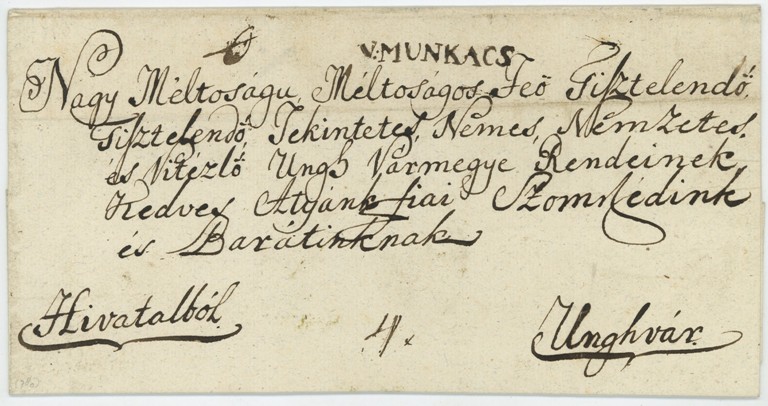 V:MUNKACS
Nagy Méltoságu, Méltoságos, Feö Tisztelendő,
Tisztelendő, Tekintetes, Nemes, Nemzetes,
és Vitézlő Ungh Vármegye Rendeinek,
Kedves Atyánkfiai Szomszédink
és Barátinknak
Hivatalból.
4.
Unghvár.